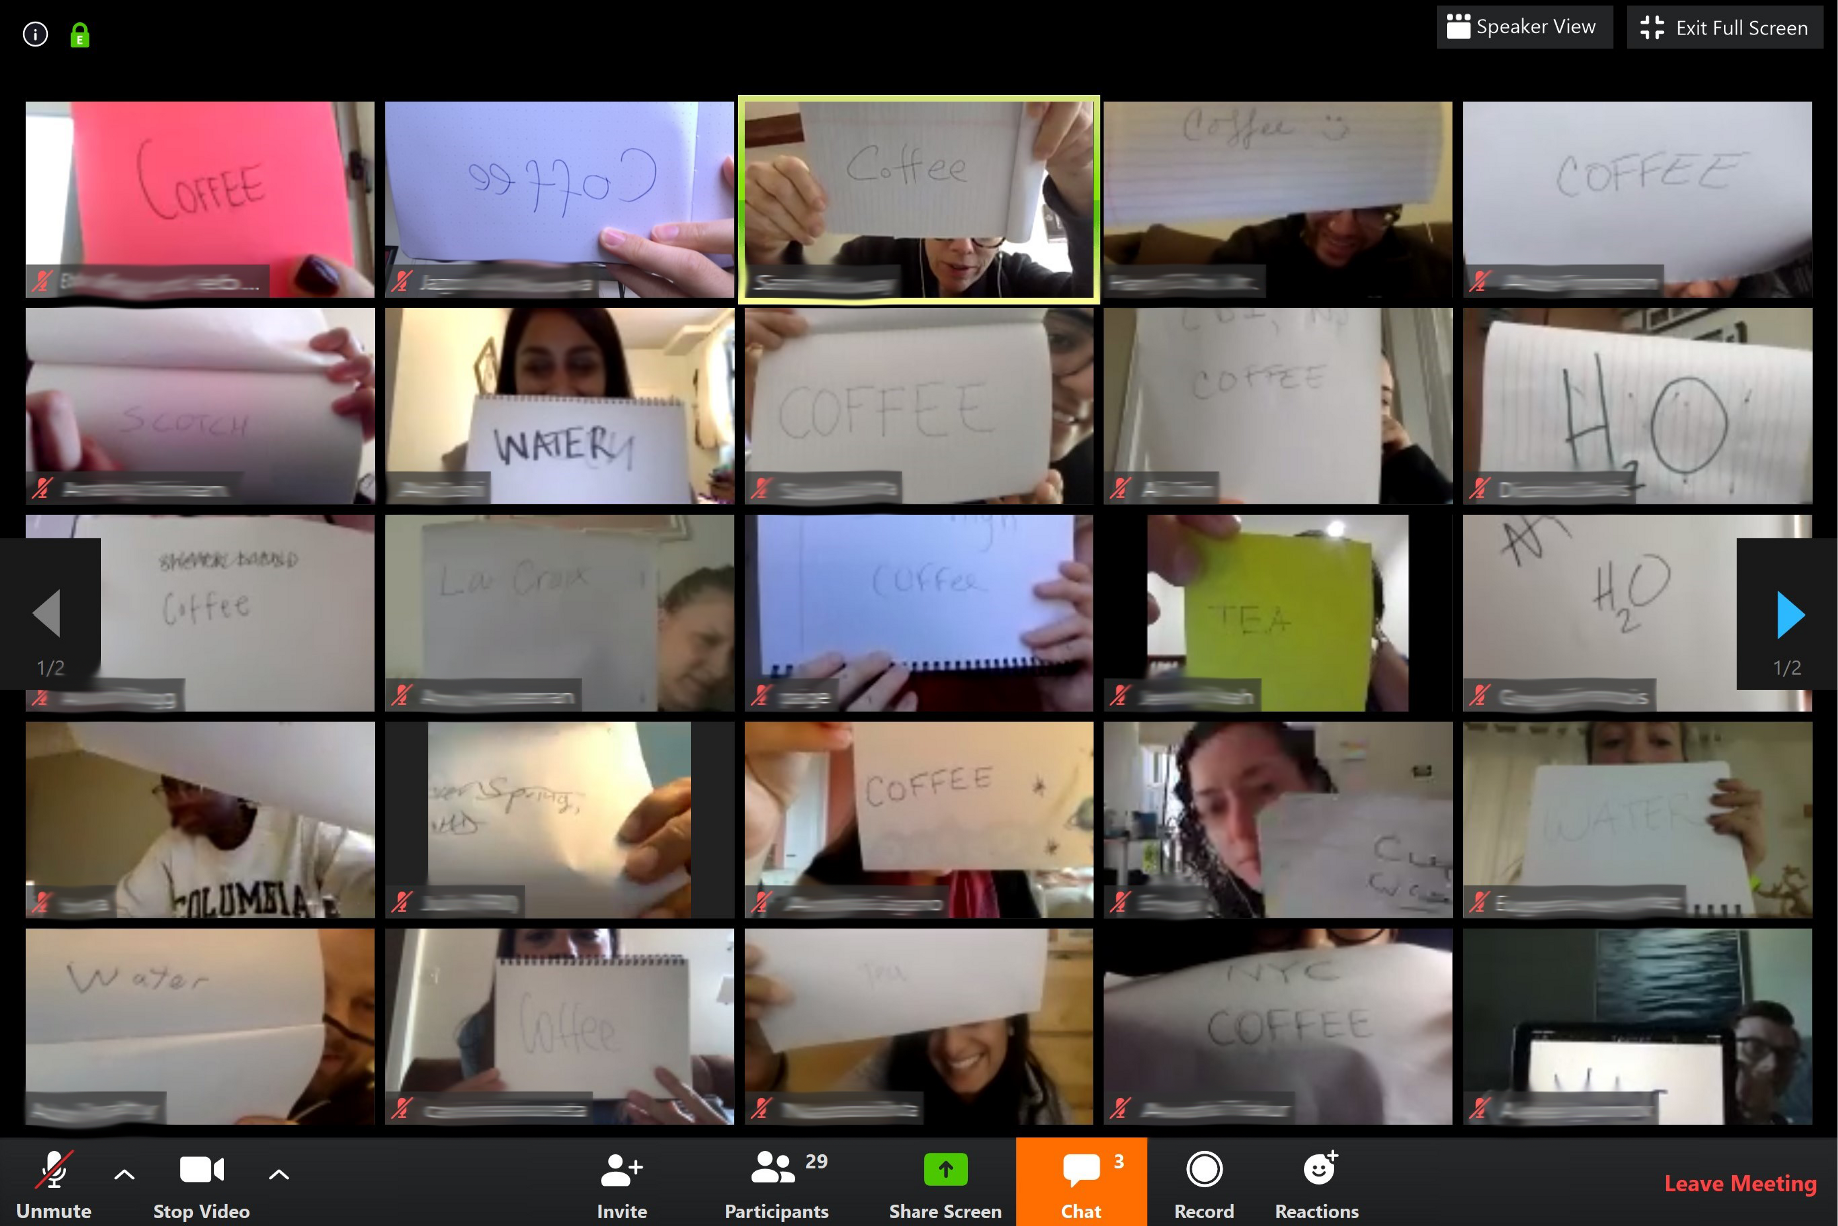 Speaker View
Exit Full Screen
COFFEE
Coffee
Coffee
Coffee
COFFEE
SCOTCH
WATER
COFFEE
COFFEE
H2O
Coffee
La Croix
COFFee
TEA
H2O
1/2
1/2
COLUMBIA
Spring,
COFFEE
WATER
Water
Coffee
Tea
NYC
COFFEE
Unmute
Stop Video
Invite
Participants
29
Share Screen
Chat
3
Record
Reactions
Leave Meeting